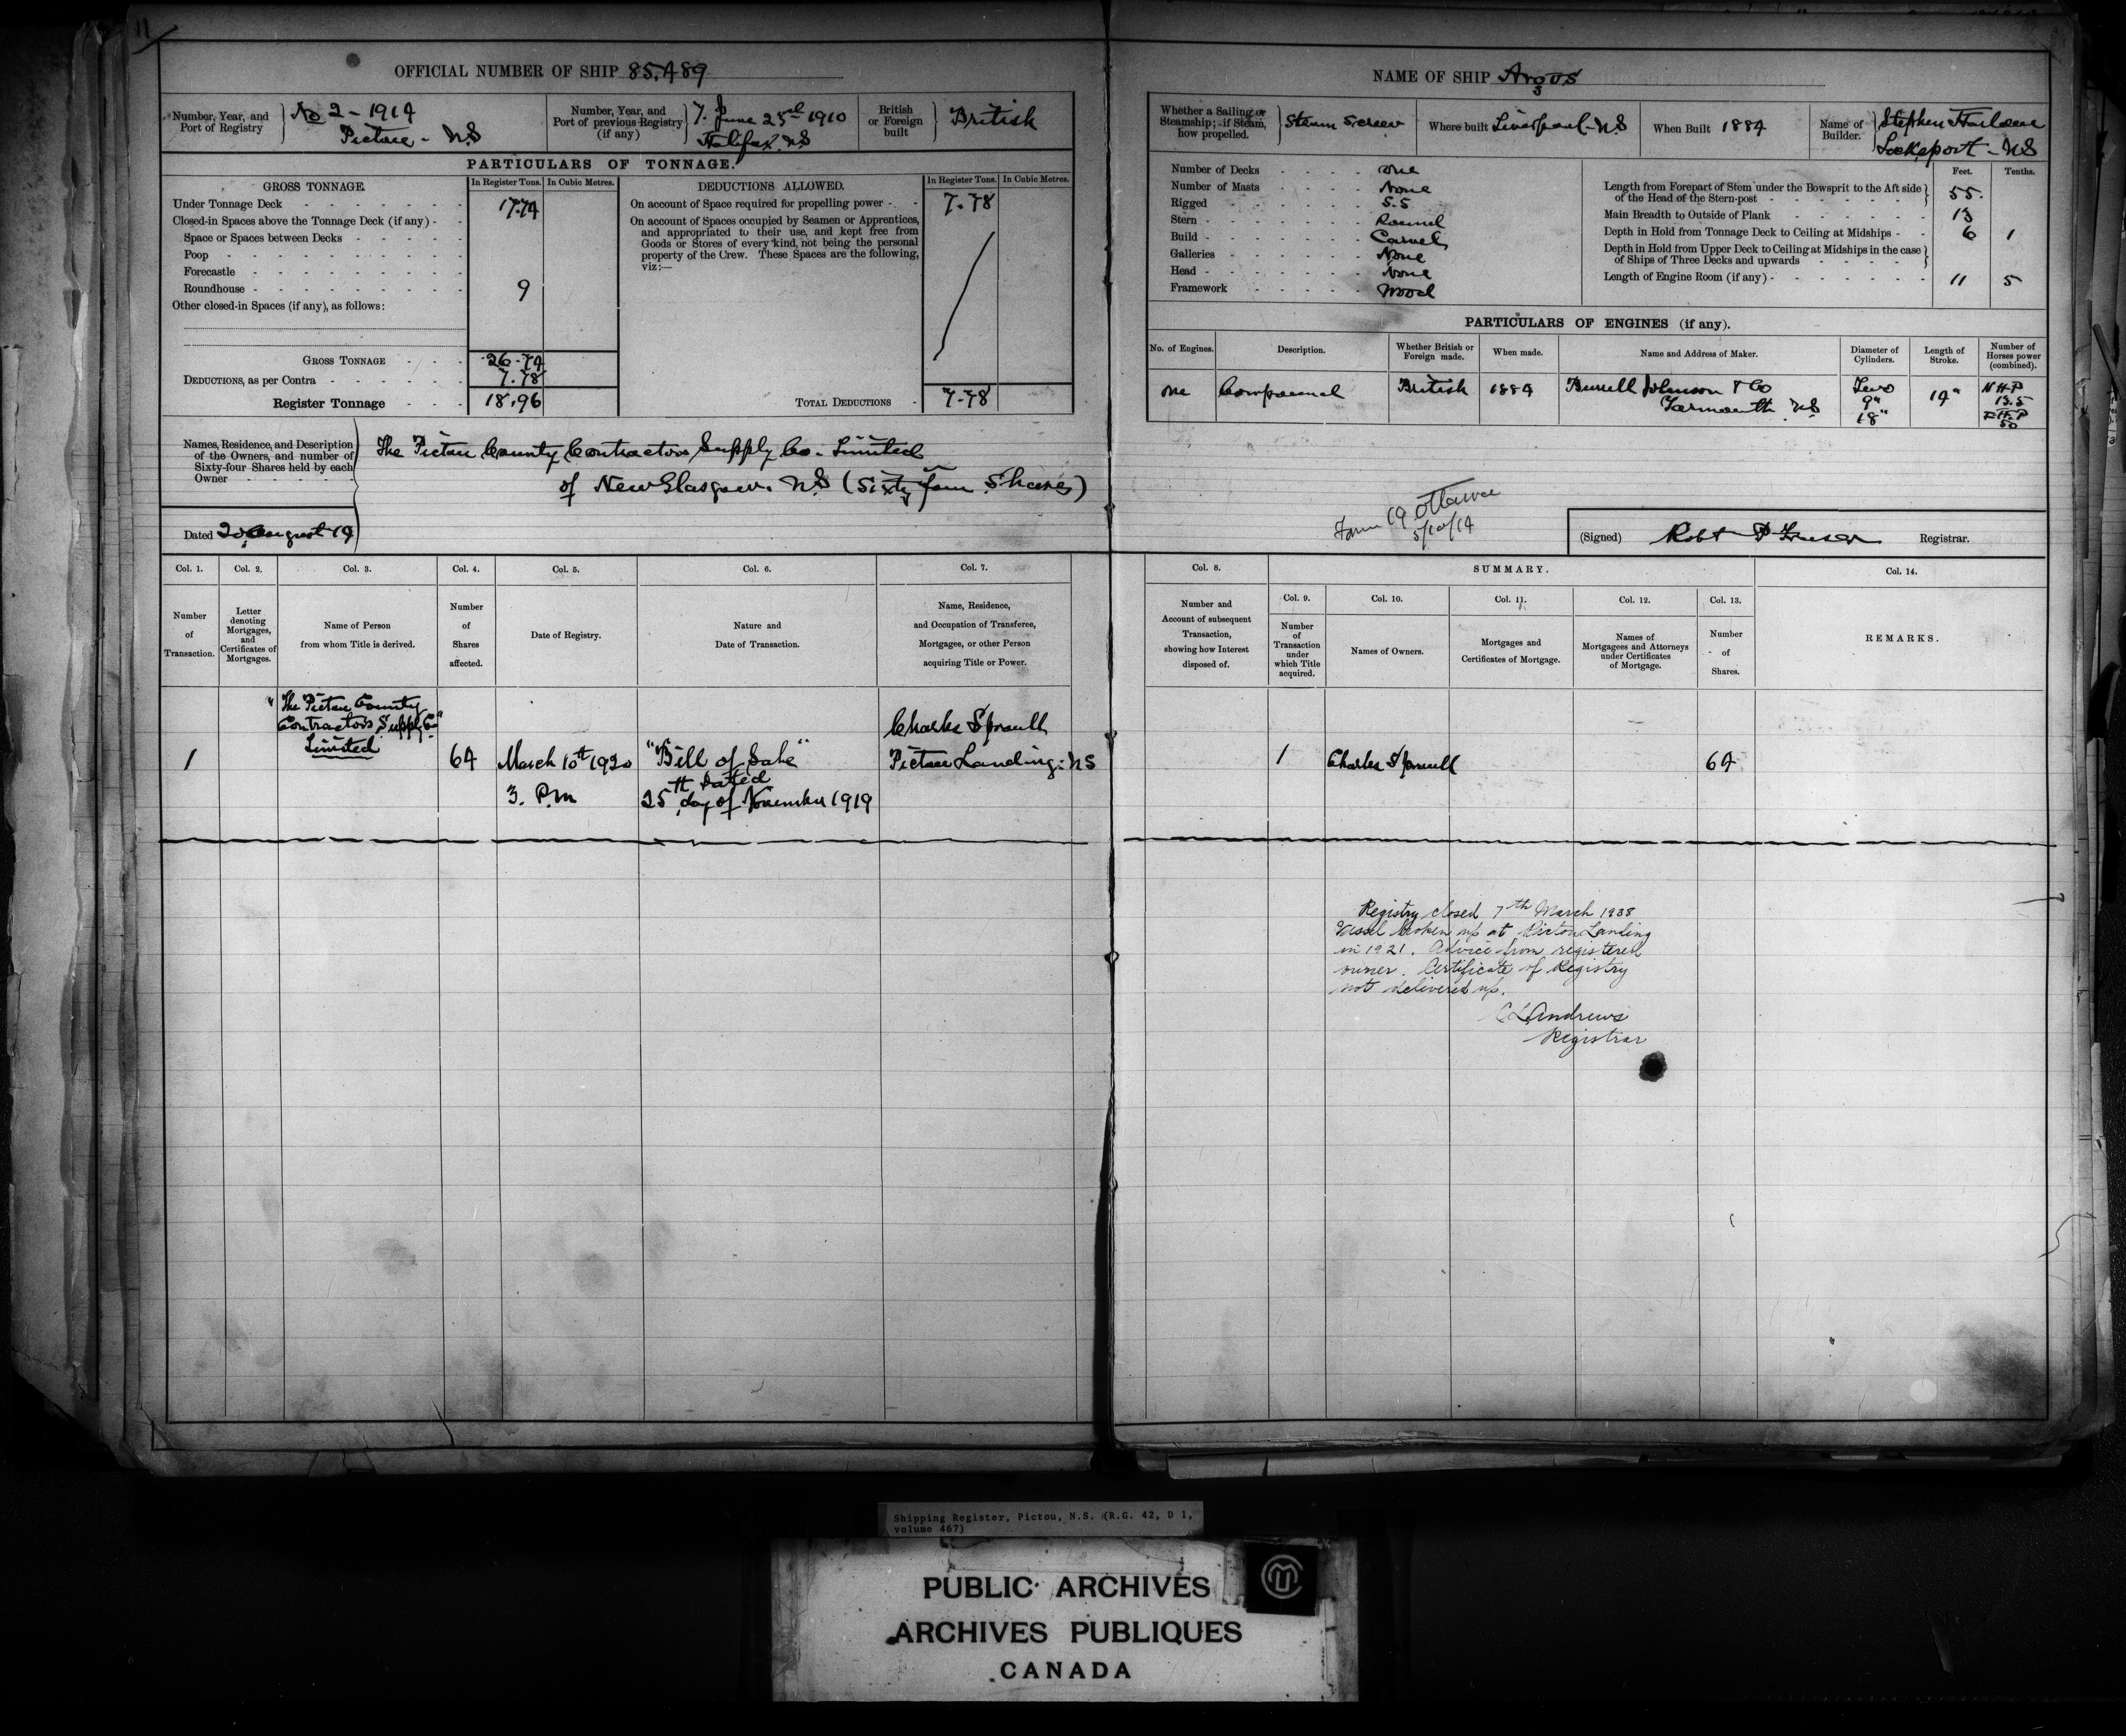 11
OFFICIAL NUMBER OF SHIP 85.489
Number, Year, and Port of Registry
No 2 - 1914
Pictou - NS
Number, Year, and Port of previous Registry (if any)
7. June 23rd 1910
Halifax. NS
British or Foreign built
British
PARTICULARS OF TONNAGE.
GROSS TONNAGE.
In Register Tons.
In Cubic Metres.
DEDUCTIONS ALLOWED.
In Register Tons.
In Cubic Metres.
Under Tonnage Deck 17.74
Closed-in Spaces above the Tonnage Deck (if any)
Space or Spaces between Decks
Poop
Forecastle
Roundhouse 9
Other closed-in Spaces (if any), as follows:
GROSS TONNAGE 26.74
DEDUCTIONS, as per Contra 7.78
Register Tonnage 18.96
On account of Space required for propelling power 7.78
On account of Spaces occupied by Seamen or Apprentices,
and appropriated to their use, and kept free from
Goods or Stores of every kind, not being the personal
property of the Crew. These Spaces are the following,
viz:—
TOTAL DEDUCTIONS 7.78
Names, Residence, and Description
of the Owners, and number of
Sixty-four Shares held by each
Owner
The Pictou County Contractors Supply Co. Limited
of New Glasgow. NS (Sixty four Shares)
Dated 20 August 14
Col. 1.
Number of Transaction.
Col. 2.
Letter denoting Mortgages, and Certificates of Mortgages.
Col. 3.
Name of Person from whom Title is derived.
Col. 4.
Number of Shares affected.
Col. 5.
Date of Registry.
Col. 6.
Nature and Date of Transaction.
Col. 7.
Name, Residence, and Occupation of Transferee, Mortgagee, or other Person acquiring Title or Power.
1
"The Pictou County
Contractors Supply Co"
Limited
64
March 10th 1920
3. P.M
"Bill of Sale"
Dated
25th day of November 1919
Charles Sproull
Pictou Landing. NS
NAME OF SHIP Argus
Whether a Sailing or Steamship; if Steam, how propelled.
Steam Screw
Where built Liverpool - NS
When Built 1884
Name of Builder.
Stephen
Lockeport - NS
Number of Decks One
Number of Masts None
Rigged S.S
Stern Round
Build Carvel
Galleries None
Head None
Framework Wood
Feet. Tenths.
Length from Forepart of Stem under the Bowsprit to the Aft side
of the Head of the Stern-post 55.
Main Breadth to Outside of Plank 13
Depth in Hold from Tonnage Deck to Ceiling at Midships 6 1
Depth in Hold from Upper Deck to Ceiling at Midships in the case
of Ships of Three Decks and upwards
Length of Engine Room (if any) 11 5
PARTICULARS OF ENGINES (if any).
No. of Engines.
Description.
Whether British or Foreign made.
When made.
Name and Address of Maker.
Diameter of Cylinders.
Length of Stroke.
Number of Horses power (combined).
One
Compound
British
1884
Burrell Johnson & Co
Yarmouth NS
Two
9"
18"
14"
N H.P
13.5
50
Form 19 Ottawa
5/10/14
(Signed) Robt P Fraser Registrar.
Col. 8.
Number and Account of subsequent Transaction, showing how Interest disposed of.
SUMMARY.
Col. 9.
Number of Transaction under which Title acquired.
Col. 10.
Names of Owners.
Col. 11.
Mortgages and Certificates of Mortgage.
Col. 12.
Names of Mortgagees and Attorneys under Certificates of Mortgage.
Col. 13.
Number of Shares.
Col. 14.
REMARKS.
1
Charles Sproull
64
Registry closed 7th March 1938
Vessel broken up at Pictou Landing
in 1921. Advice from registered
owner. Certificate of Registry
not delivered up.
C L Andrews
Registrar
Shipping Register, Pictou, N.S. (R.G. 42, D 1,
volume 467)
PUBLIC ARCHIVES
ARCHIVES PUBLIQUES
CANADA